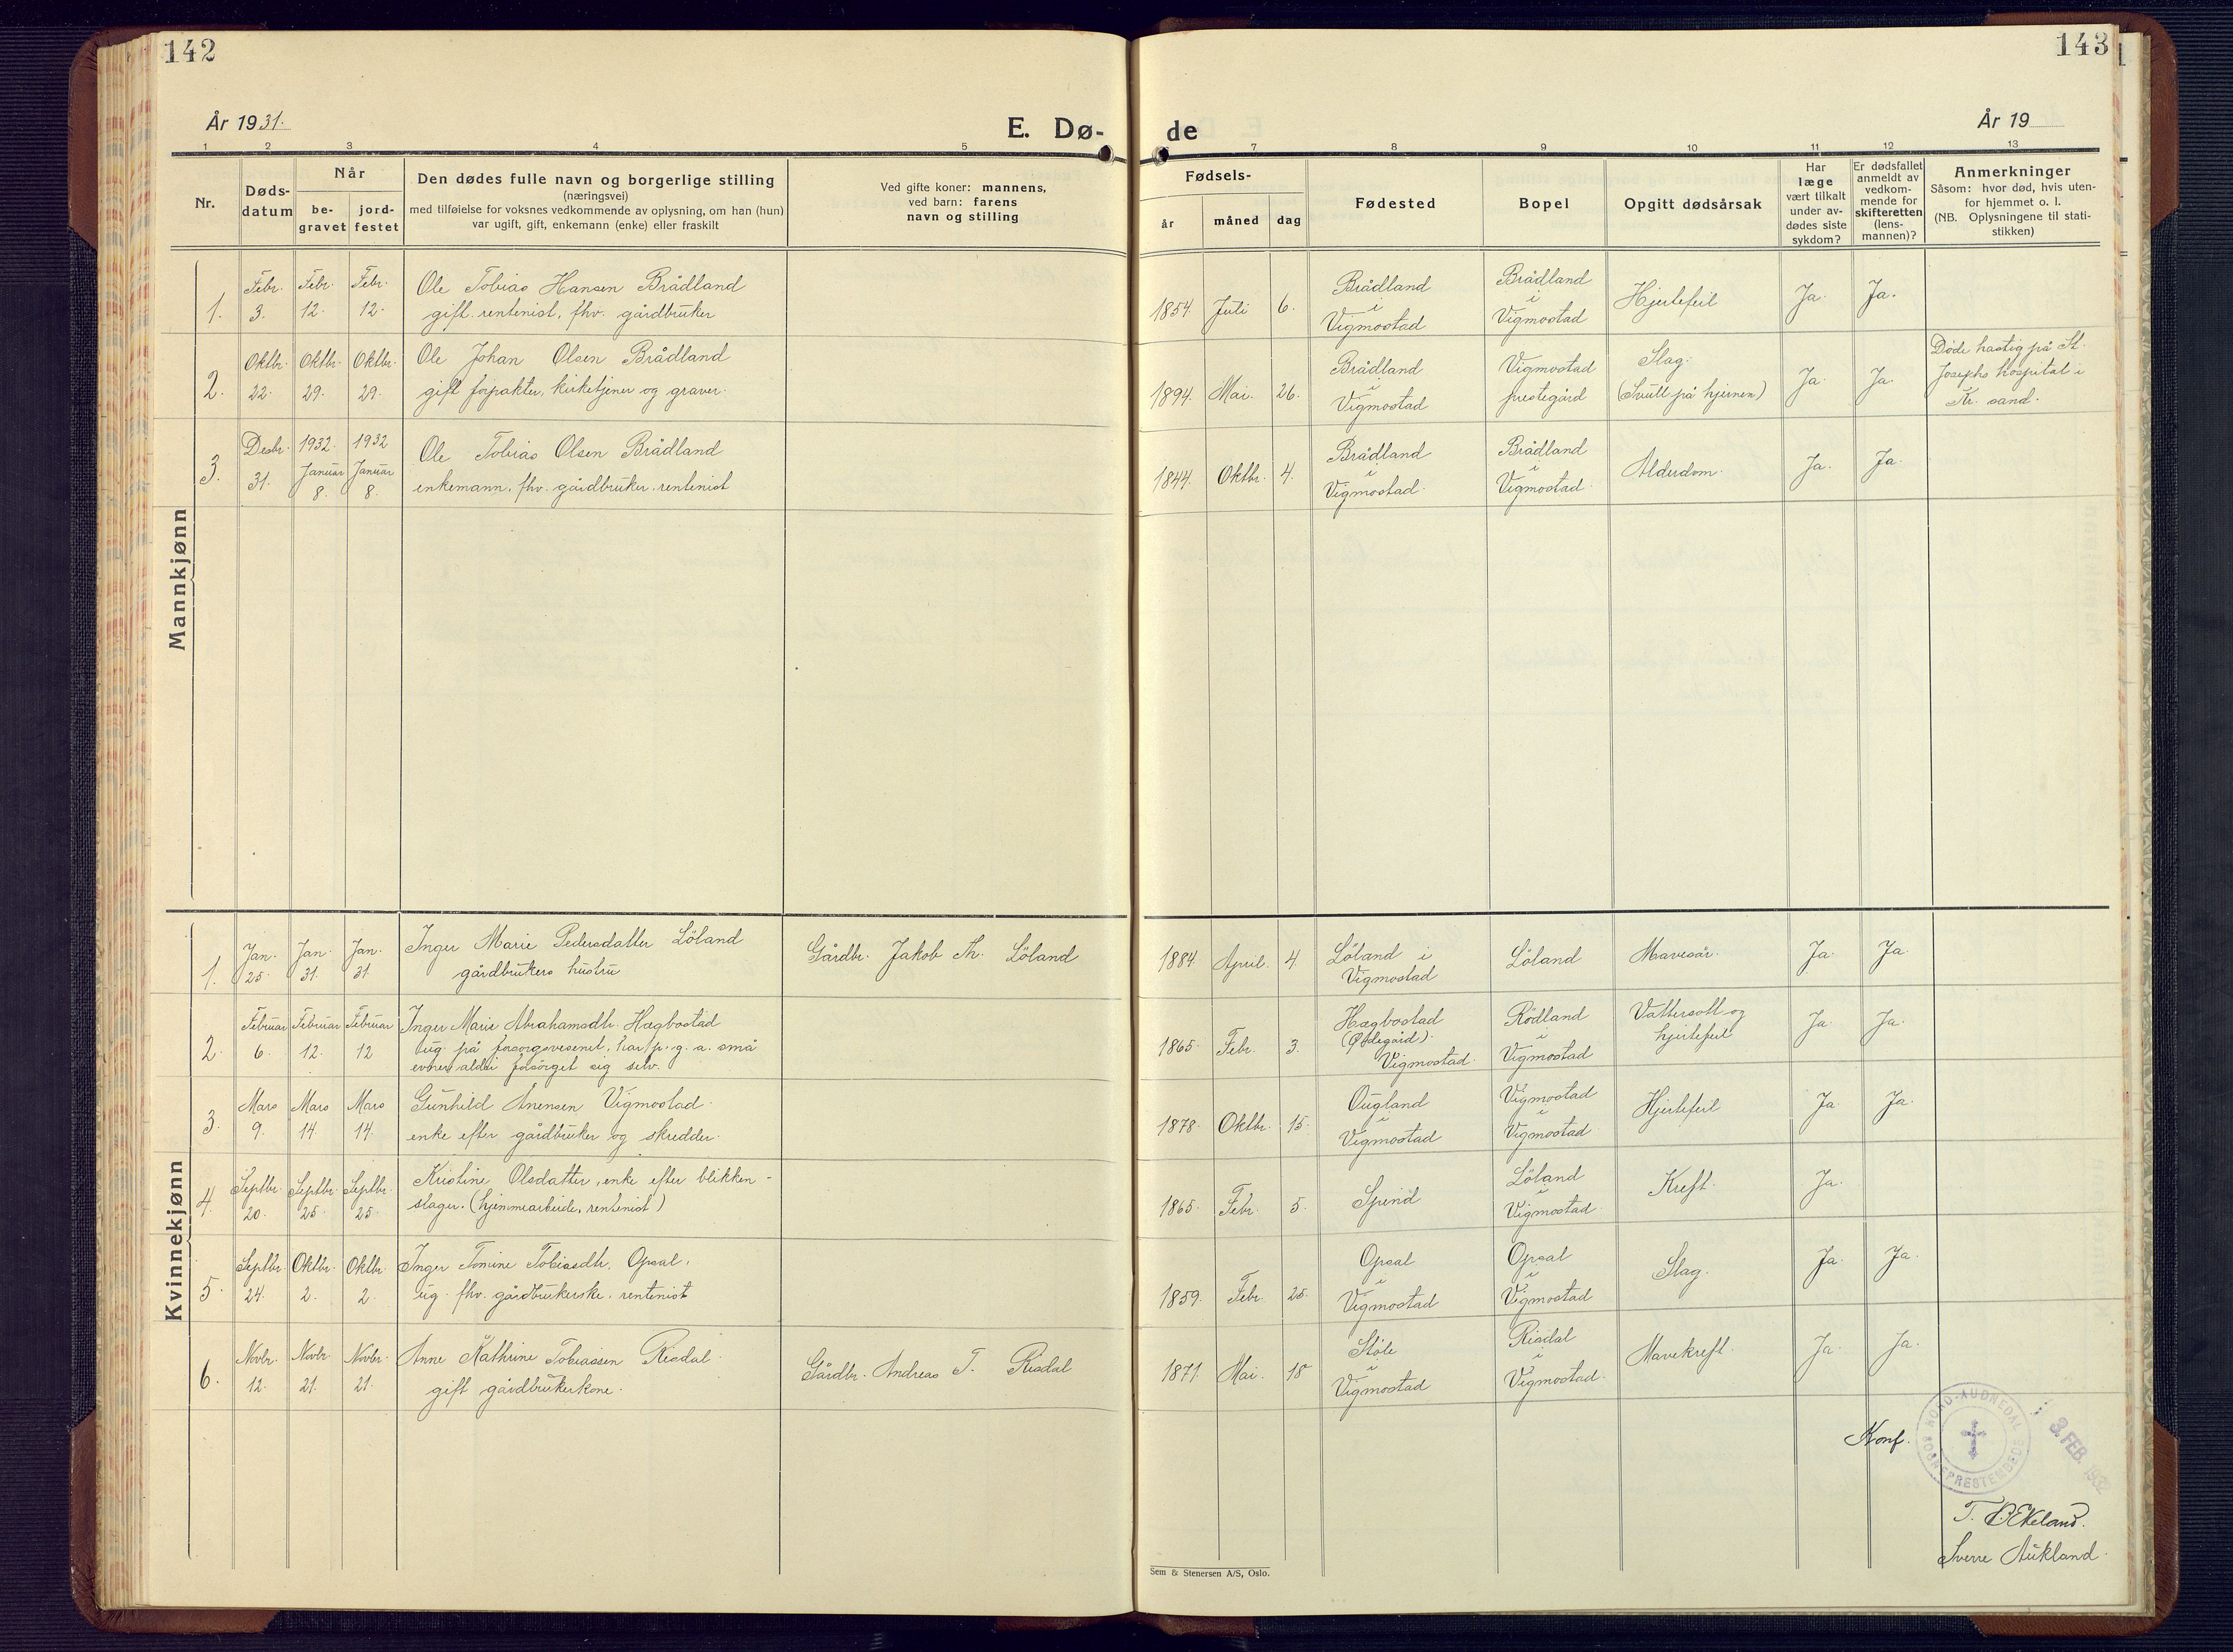 142
År 1931.
E. Dø-
1 2 3 4 5
Nr.
Døds-
datum
Når
be-
gravet
jord-
festet
Den dødes fulle navn og borgerlige stilling
(næringsvei)
med tilføielse for voksnes vedkommende av oplysning, om han (hun)
var ugift, gift, enkemann (enke) eller fraskilt
Ved gifte koner: mannens,
ved barn: farens
navn og stilling
Mannkjønn
Febr. Febr. Febr. Ole Tobias Hansen Brådland
1. 3. 12. 12. gift. rentenist, fhv. gårdbruker
Oktbr. Oktbr. Oktbr. Ole Johan Olsen Brådland
2. 22. 29. 29. gift forpakter, kirketjener og graver.
Desbr. 1932. 1932 Ole Tobias Olsen Brådland
3. 31. Januar 8. Januar 8. enkemann, fhv. gårdbruker. rentenist
Kvinnekjønn
Jan. Jan. Jan. Inger Marie Pedersdatter Löland Gårdbr. Jakob Th. Löland
1. 25. 31. 31. gårdbrukers hustru
Februar Februar Februar Inger Marie Abrahamsdtr. Hægbostad
2. 6. 12. 12 ug. på forsorgsvesenet, har p. g. a. små
evner aldri forsörget sig selv.
Mars Mars Mars Gunhild Anensen Vigmostad.
3. 9. 14. 14. enke efter gårdbruker og skredder.
Septbr. Septbr. Septbr. Kristine Olsdatter, enke efter blikken-
4. 20. 25. 25. slager. (hjemmearbeide, rentenist)
Septbr. Oktbr. Oktbr. Inger Tomine Tobiasdtr. Opsal,
5. 24. 2. 2. ug. fhv. gårdbrukerske. rentenist
Novbr. Novbr. Novbr. Anne Kathrine Tobiassen Risdal. Gårdbr. Andreas T. Risdal
6. 12. 21. 21. gift gårdbrukerkone.
143
de
År 19
7 8 9 10 11 12 13
Fødsels-
år måned dag
Fødested
Bopel
Opgitt dødsårsak
Har
læge
vært tilkalt
under av-
dødes siste
sykdom?
Er dødsfallet
anmeldt av
vedkom-
mende for
skifteretten
(lens-
mannen)?
Anmerkninger
Såsom: hvor død, hvis uten-
for hjemmet o. l.
(NB. Oplysningene til stati-
stikken)
1854. Juli 6. Brådland i Vigmostad Brådland i Vigmostad Hjertefeil Ja. Ja.
1894. Mai. 26. Brådland i Vigmostad Vigmostad prestegård Slag. (Svull på hjernen) Ja. Ja. Döde hastig på St. Josephs hospital i Kr. sand.
1844. Oktbr. 4. Brådland i Vigmostad. Brådland i Vigmostad. Alderdom. Ja. Ja.
1884. April. 4. Löland i Vigmostad Löland Mavesår. Ja. Ja.
1865. Febr. 3. Hægbostad (Ødegård). Vigmostad. Rödland i Vigmostad Vattersott og hjertefeil Ja. Ja.
1878. Oktbr. 15. Ougland i Vigmostad Vigmostad i Vigmostad. Hjertefeil Ja. Ja.
1865. Febr. 5. Spind Löland i Vigmostad. Kreft. Ja.
1859. Febr. 25. Opsal i Vigmostad Opsal i Vigmostad Slag. Ja. Ja.
1871. Mai. 18 Støle i Vigmostad Risdal i Vigmostad. Mavekreft. Ja. Ja.
Konf.
NORD-AUDNEDAL SOGNEPRESTEMBEDE
3. FEB. 1932
Ekeland.
Sverre Aukland.
Sem & Stenersen A/S, Oslo.